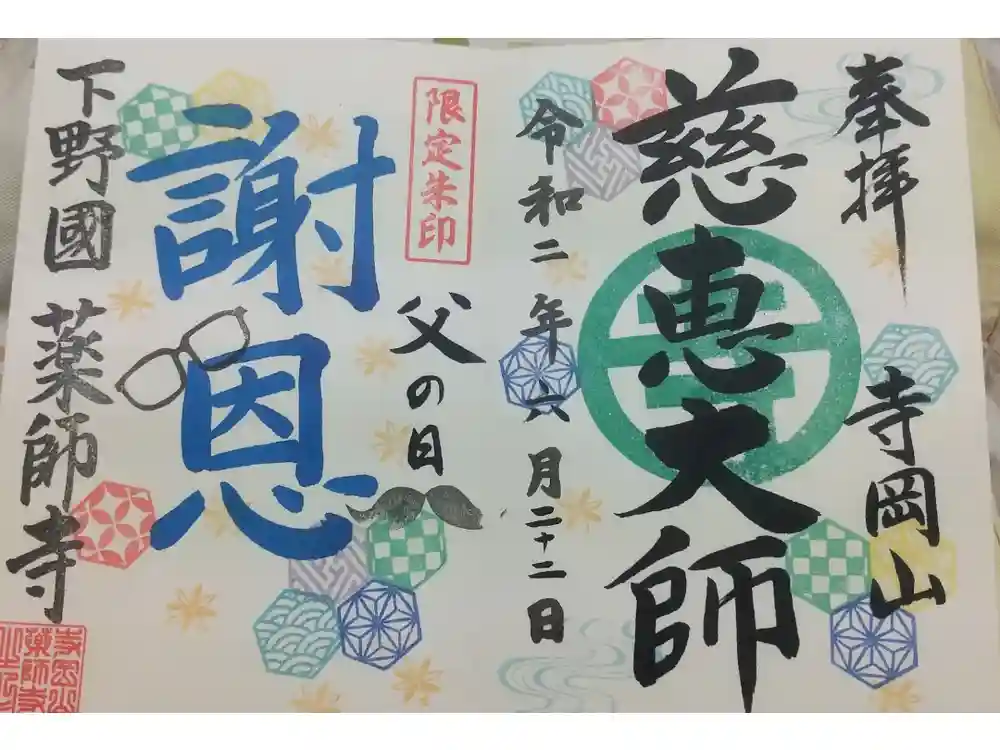 奉拝
寺岡山
慈恵大師
令和二年六月二十二日
限定朱印
父の日
謝恩
下野國
薬師寺